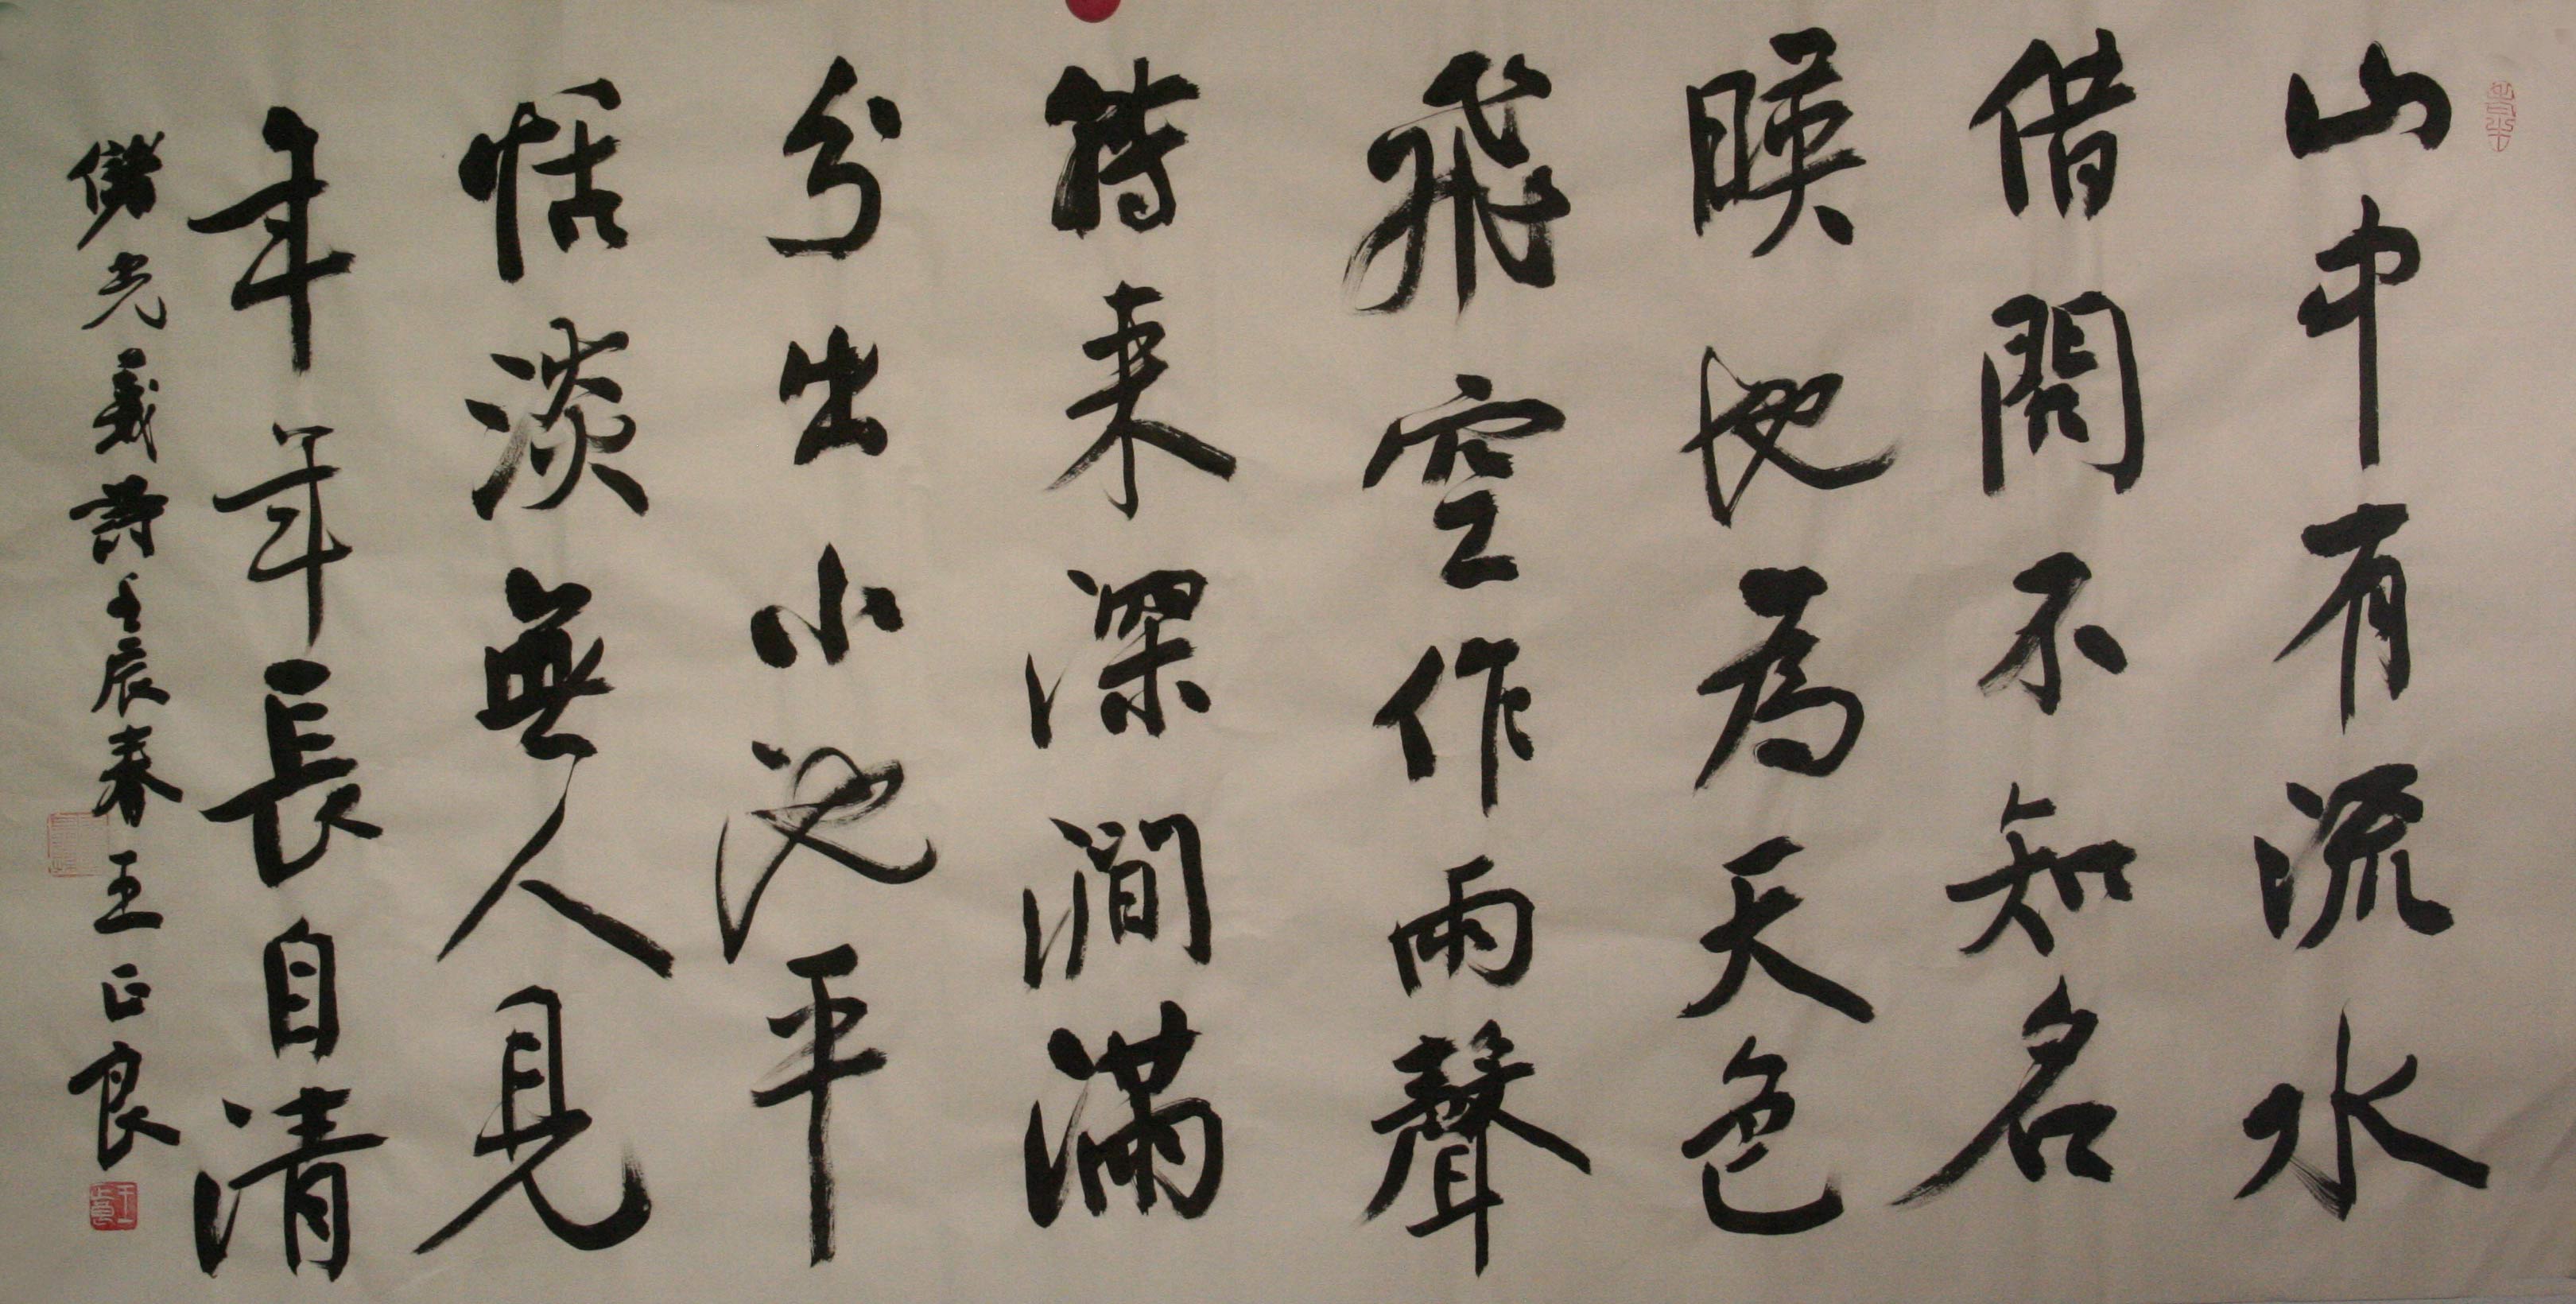 山中有流水
借問不知名
暎地為天色
飛空作雨聲
轉来深澗滿
分出小池平
恬淡無人見
年年長自清
儲光羲詩壬辰春王正良